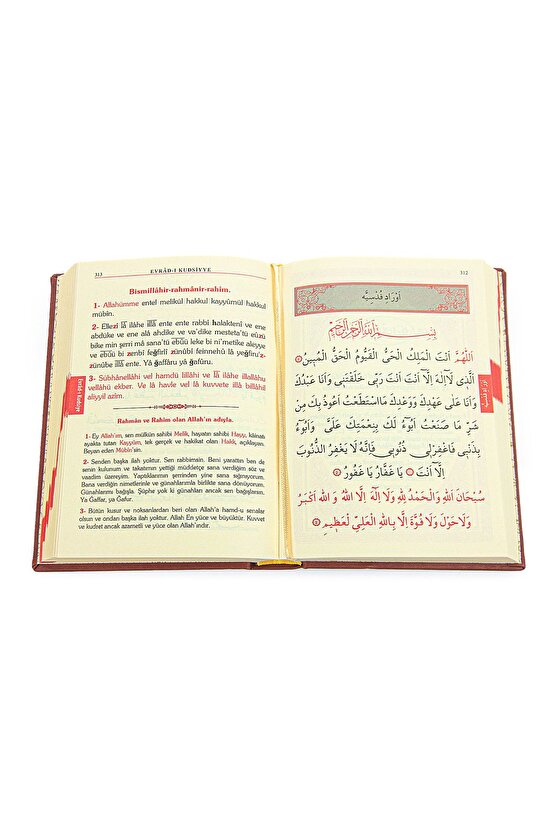 313 EVRÂD-I KUDSİYYE
Bismillâhir-rahmânir-rahîm.
1- Allahümme entel melikül hakkul kayyûmül hakkul
mübîn.
2- Ellezî lâ ilâhe illâ ente ente rabbî halaktenî ve ene
abdüke ve ene alâ ahdike ve va'dike mesteta'tü eûzü
bike min şerri mâ sana'tü ebûü leke bi ni'metike aleyye
ve ebûü bi zenbî feğfirlî zünûbî feinnehû lâ yeğfiru'z-
zünûbe illâ ente. Yâ ğaffâru yâ ğafûru.
3- Sübhânellâhi vel hamdü lillâhi ve lâ ilâhe illallâhu
vellâhü ekber. Ve lâ havle vel lâ kuvvete illâ billâhil
aliyyil azîm.
Rahmân ve Rahîm olan Allah'ın adıyla.
1- Ey Allah'ım, sen mülkün sahibi Melik, hayatın sahibi Hayy, kâinatı
ayakta tutan Kayyûm, tek gerçek ve hakikat olan Hakk, açıklayan,
Beyan eden Mübîn'sin.
2- Senden başka ilah yoktur. Sen rabbimsin. Beni yarattın ben de
senin kulunum ve takatımın yettiği müddetçe sana verdiğim söz ve
vaadim üzereyim. Yaptıklarımın şerrinden yine sana sığınıyorum.
Bana verdiğin nimetlerinle ve günahlarımla birlikte sana dönüyorum.
Günahlarımı bağışla. Şüphe yok ki günahları ancak sen bağışlarsın.
Ya Gaffar, ya Gafur.
3- Bütün kusur ve noksanlardan beri olan Allah'a hamd-u senalar
olsun ve ondan başka ilah yoktur. Allah En yüce ve büyüktür. Kuvvet
ve kudret ancak azametli ve yüce olan Allah'ındır.
Evrâd-ı Kudsiyye
312
اَوْرَادِ قُدْسِيَّه
بِسْمِ اللّٰهِ الرَّحْمٰنِ الرَّحِيمِ
اَللّٰهُمَّ اَنْتَ الْمَلِكُ الْحَقُّ الْقَيُّومُ الْحَقُّ الْمُبِينُ ١
اَلَّذِى لَٓا اِلٰهَ اِلَّٓا اَنْتَ اَنْتَ رَبِّى خَلَقْتَنِى وَاَنَا عَبْدُكَ
وَاَنَا عَلٰى عَهْدِكَ وَوَعْدِكَ مَااسْتَطَعْتُ اَعُوذُ بِكَ مِنْ
شَرِّ مَا صَنَعْتُ اَبُوٓءُ لَكَ بِنِعْمَتِكَ عَلَىَّ وَاَبُوٓءُ
بِذَنْبِى فَاغْفِرْلِى ذُنُوبِى فَاِنَّهُ لَا يَغْفِرُ الذُّنُوبَ
اِلَّٓا اَنْتَ يَا غَفَّارُ يَا غَفُورُ ٢
سُبْحَانَ اللّٰهِ وَالْحَمْدُ لِلّٰهِ وَلَٓا اِلٰهَ اِلَّا اللّٰهُ وَ اللّٰهُ اَكْبَرُ
وَلَا حَوْلَ وَلَا قُوَّةَ اِلَّا بِاللّٰهِ الْعَلِىِّ الْعَظِيمِ ٣
اَوْرَادِ قُدْسِيَّه